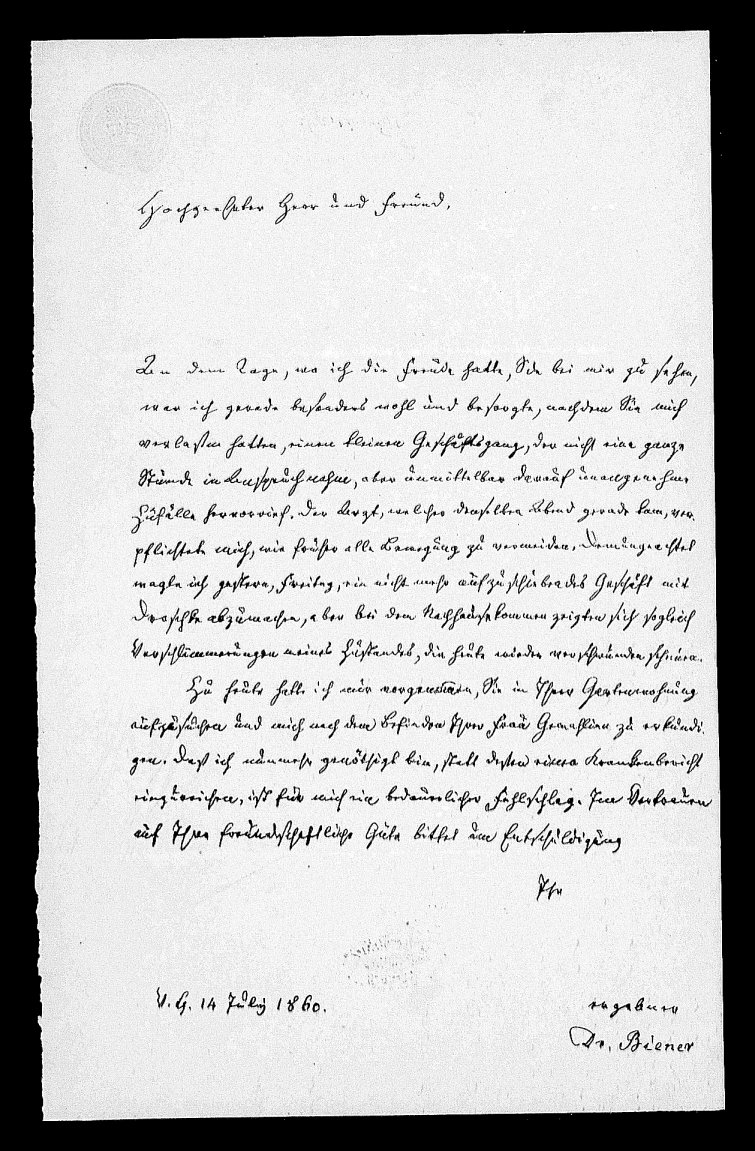 Hochgeehrter Herr und Freund,
An dem Tage, wo ich die Freude hatte, Sie bei mir zu sehen,
war ich gerade besonders wohl und besorgte, nachdem Sie mich
verlassen hatten, einen kleinen Geschäftsgang, der nicht eine ganze
Stunde in Anspruch nahm, aber unmittelbar darauf unangenehme
Zufälle hervorrief. Der Arzt, welcher denselben Abend gerade kam, ver-
pflichtete mich, wie früher alle Bewegung zu vermeiden. Demungeachtet
wagte ich gestern, Freitag, ein nicht mehr aufzuschiebendes Geschäft mit
Droschke abzumachen, aber bei dem Nachhausekommen zeigten sich sogleich
Verschlimmerungen meines Zustandes, die heute wieder verschwunden scheinen.
Zu heute hatte ich mir vorgenommen, Sie in Ihrer Gartenwohnung
aufzusuchen und mich nach dem Befinden Ihrer Frau Gemahlien zu erkundi-
gen. Daß ich nunmehr genöthigt bin, statt dessen einen Krankenbericht
einzureichen, ist für mich ein bedauerlicher Fehlschlag. Im Vertrauen
auf Ihre freundschaftliche Güte bittet um Entschuldigung
Ihr
V. H. 14 July 1860.
ergebner
Dr. Biener